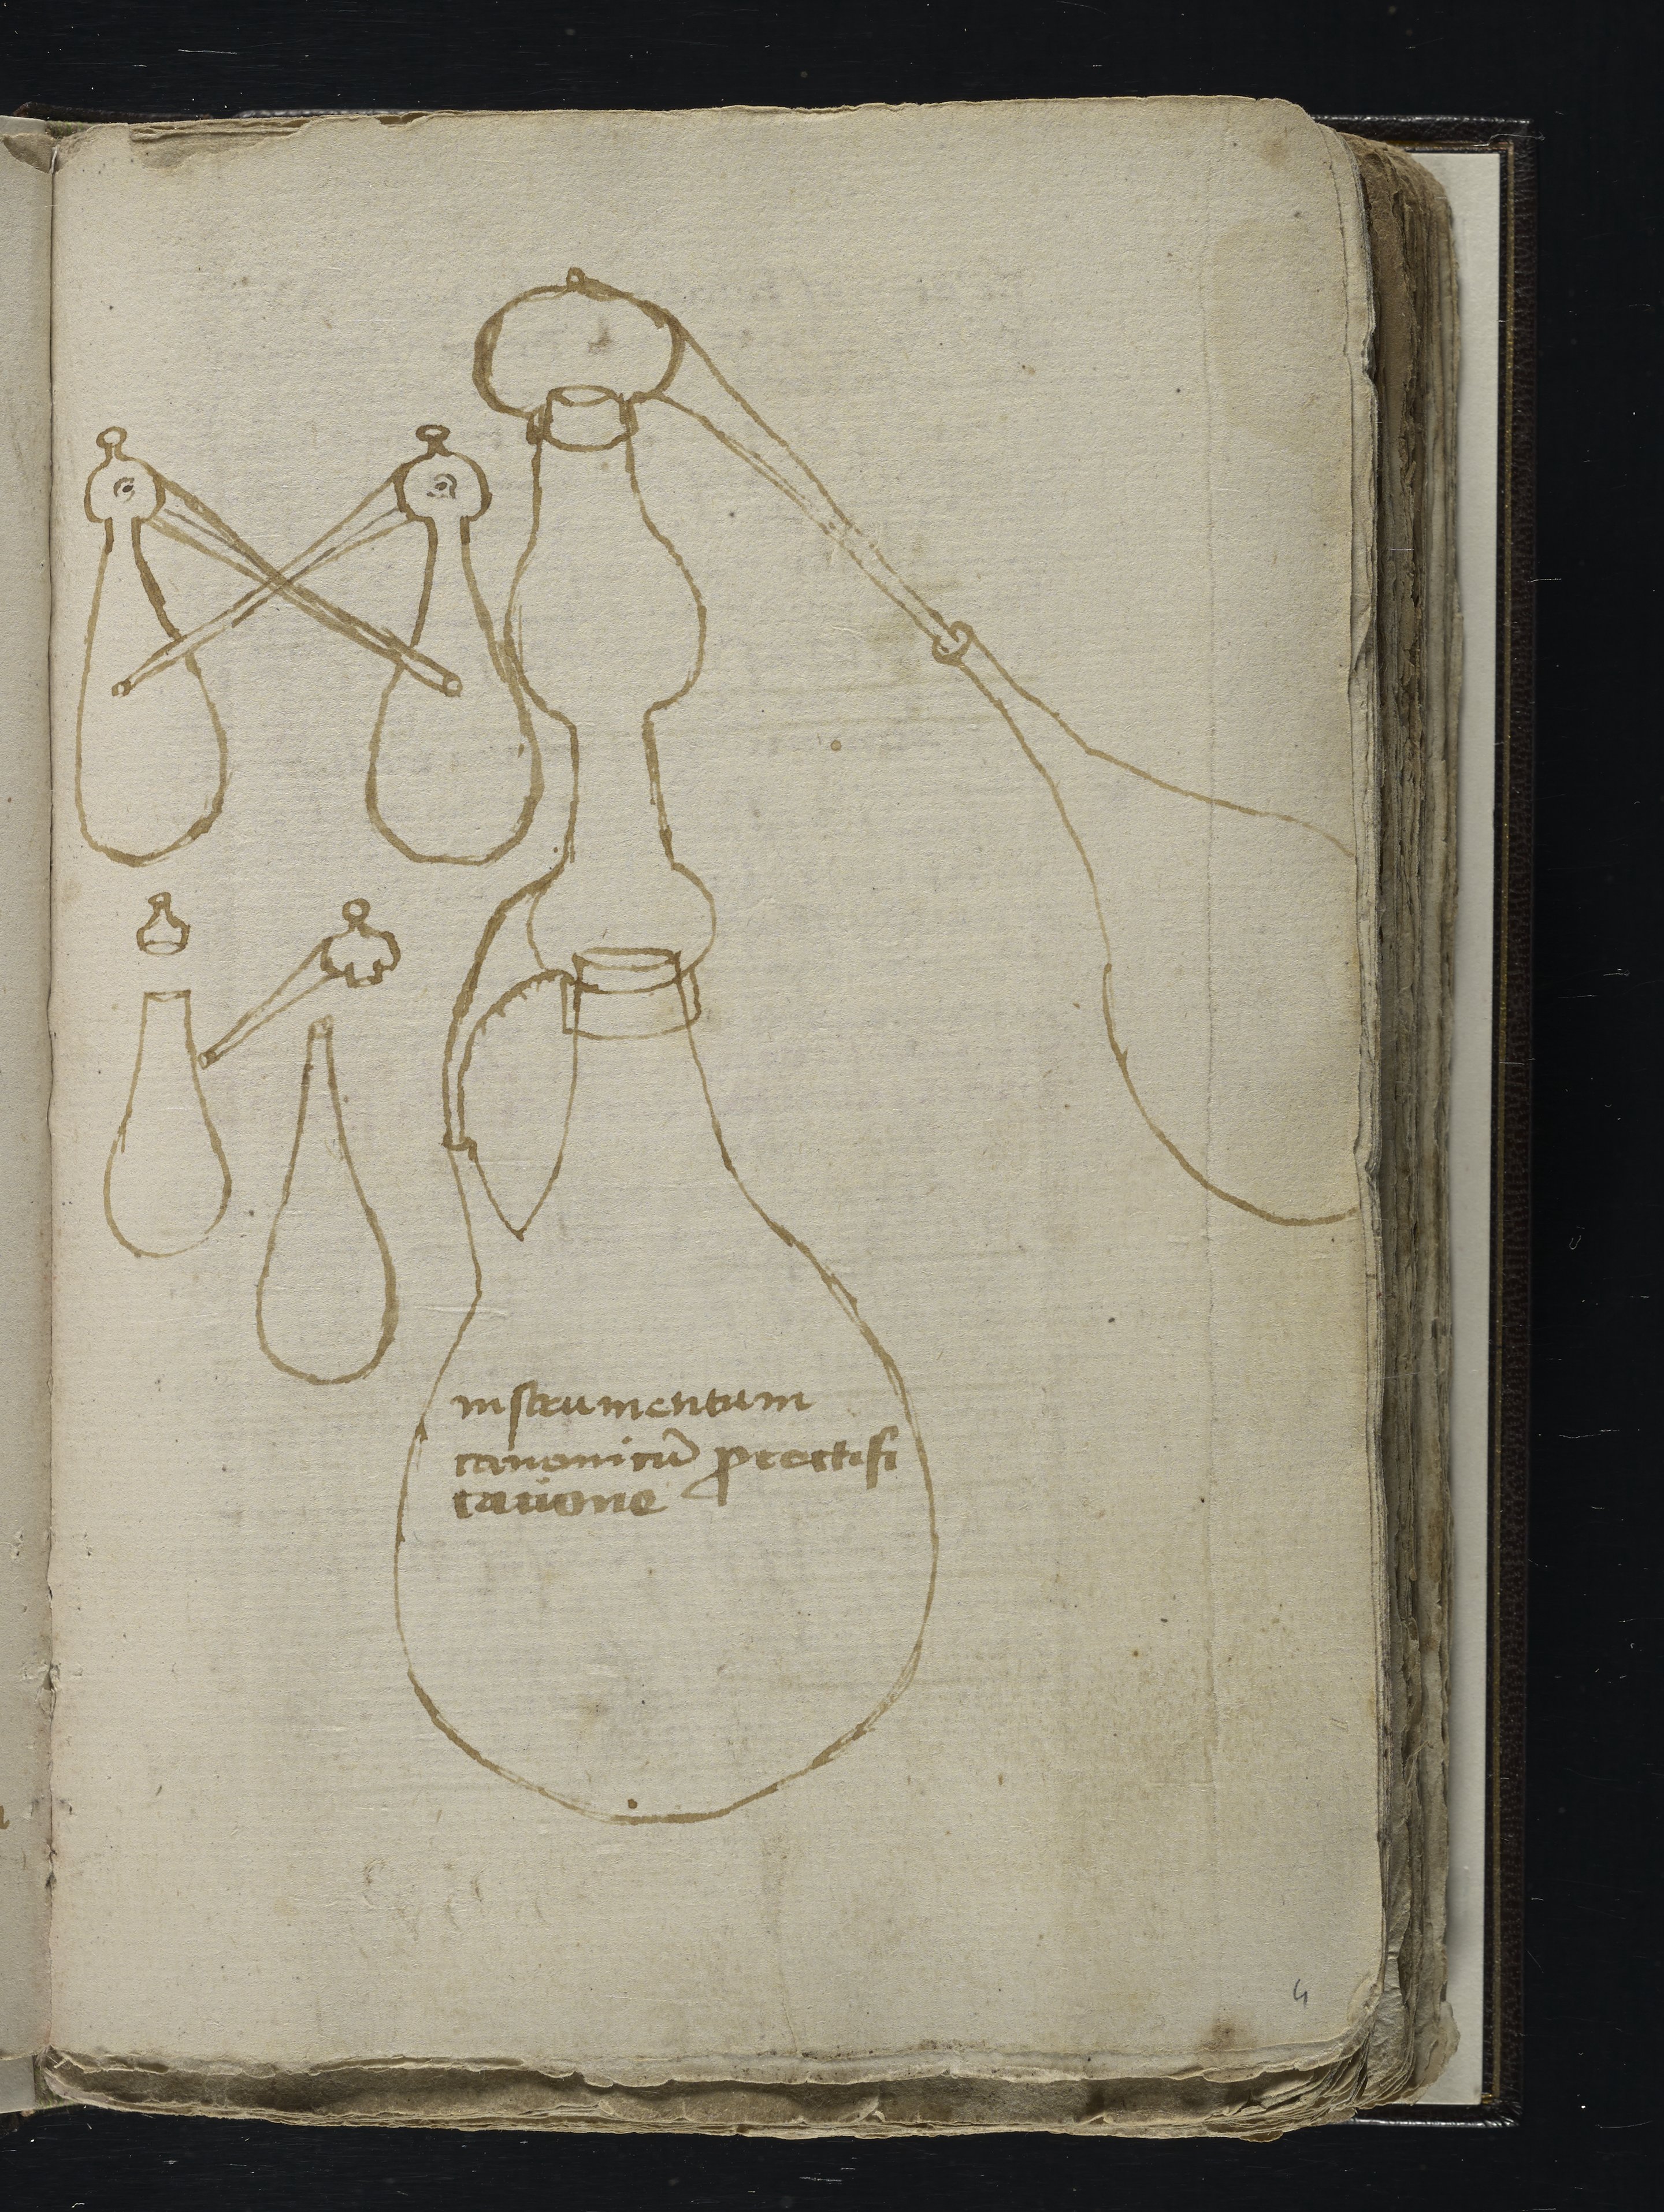 instrumentum
canonicũ ꝓrectifi
catione
4